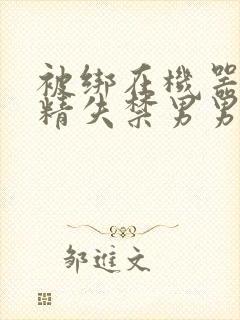 被绑在機器
精失禁男男
邹進文